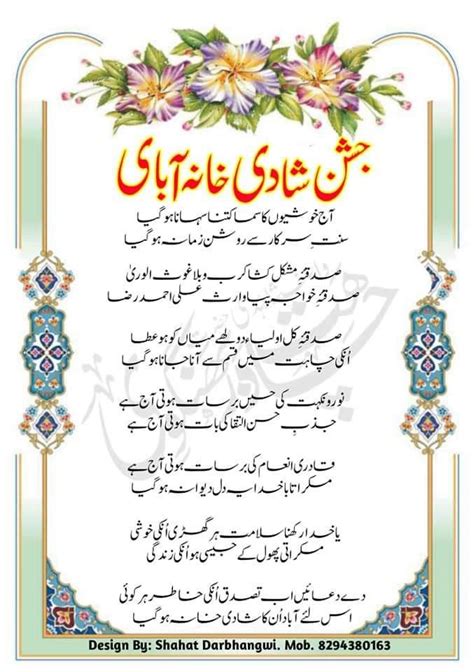 جشن شادی خانہ آبادی
آج خوشیوں کا سما کتنا سہانا ہو گیا
سنت سرکار سے روشن زمانہ ہو گیا
صدقۂ مشکل کشا کرب و بلا غوث الوریٰ
صدقۂ خواجہ پیا وارث علی احمد رضا
صدقۂ کل اولیاء دولھے میاں کو ہو عطا
انکی چاہت میں قسم سے آنا جانا ہو گیا
نور و نکہت کی حسیں برسات ہوتی آج ہے
جذب حسن التقا کی بات ہوتی آج ہے
قادری انعام کی برسات ہوتی آج ہے
مسکراتا باخدا یہ دل دیوانہ ہو گیا
یا خدا رکھنا سلامت ہر گھڑی انکی خوشی
مسکراتی پھول کے جیسی ہو انکی زندگی
دے دعائیں اب تصدق انکی خاطر ہر کوئی
اس لئے آباد اُن کا شادی خانہ ہو گیا
Design By: Shahat Darbhangwi. Mob. 8294380163